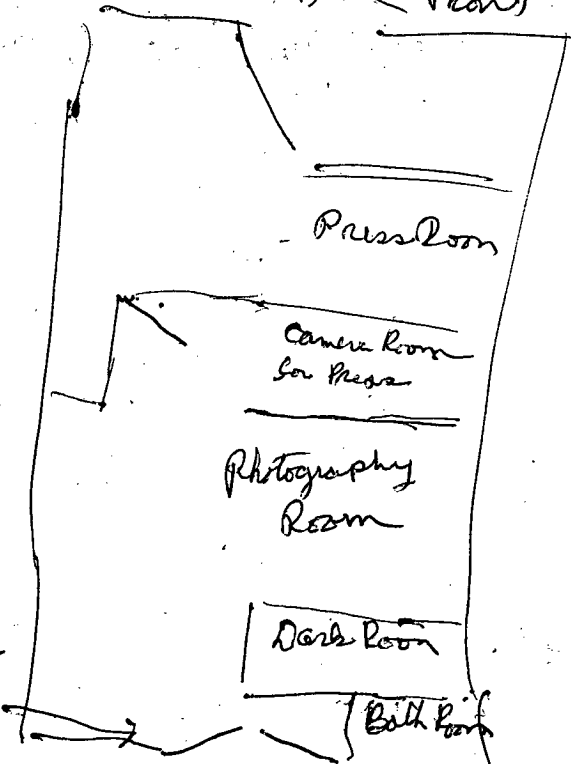 Press Room
Camera Room
for Press
Photography
Room
Dark Room
Bath Room